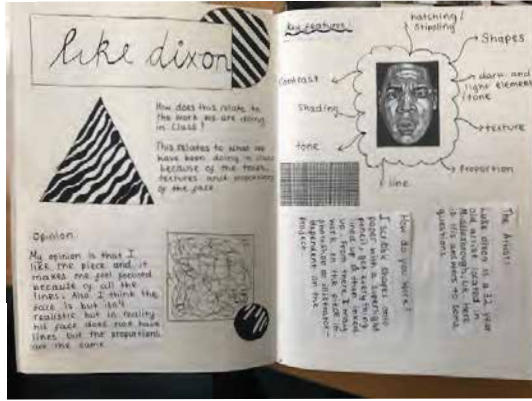 luke dixon
How does this relate to
the work we are doing
in class?
This relates to what we
have been doing in class
because of the tones,
textures and proportions
of the face
Opinion
My opinion is that I
like the piece and it
makes me feel focused
because of all the
lines. Also I think the
face is but isn't
realistic but in reality
his face does not have
lines but the proportions
are the same
Key Features:
hatching/
stippling
Shapes
dark and
light element
/tone
texture
Proportion
line
tone
Shading
Contrast
The Artist:
Luke dixon is a 32 year
old artist located in
is his answers to some
questions
How do you work?
I scribble shapes onto
paper with a
pencil, get everything
lined up & then inked
up. From there I may
work on the piece in
photoshop or illustrator -
dependent on the
project